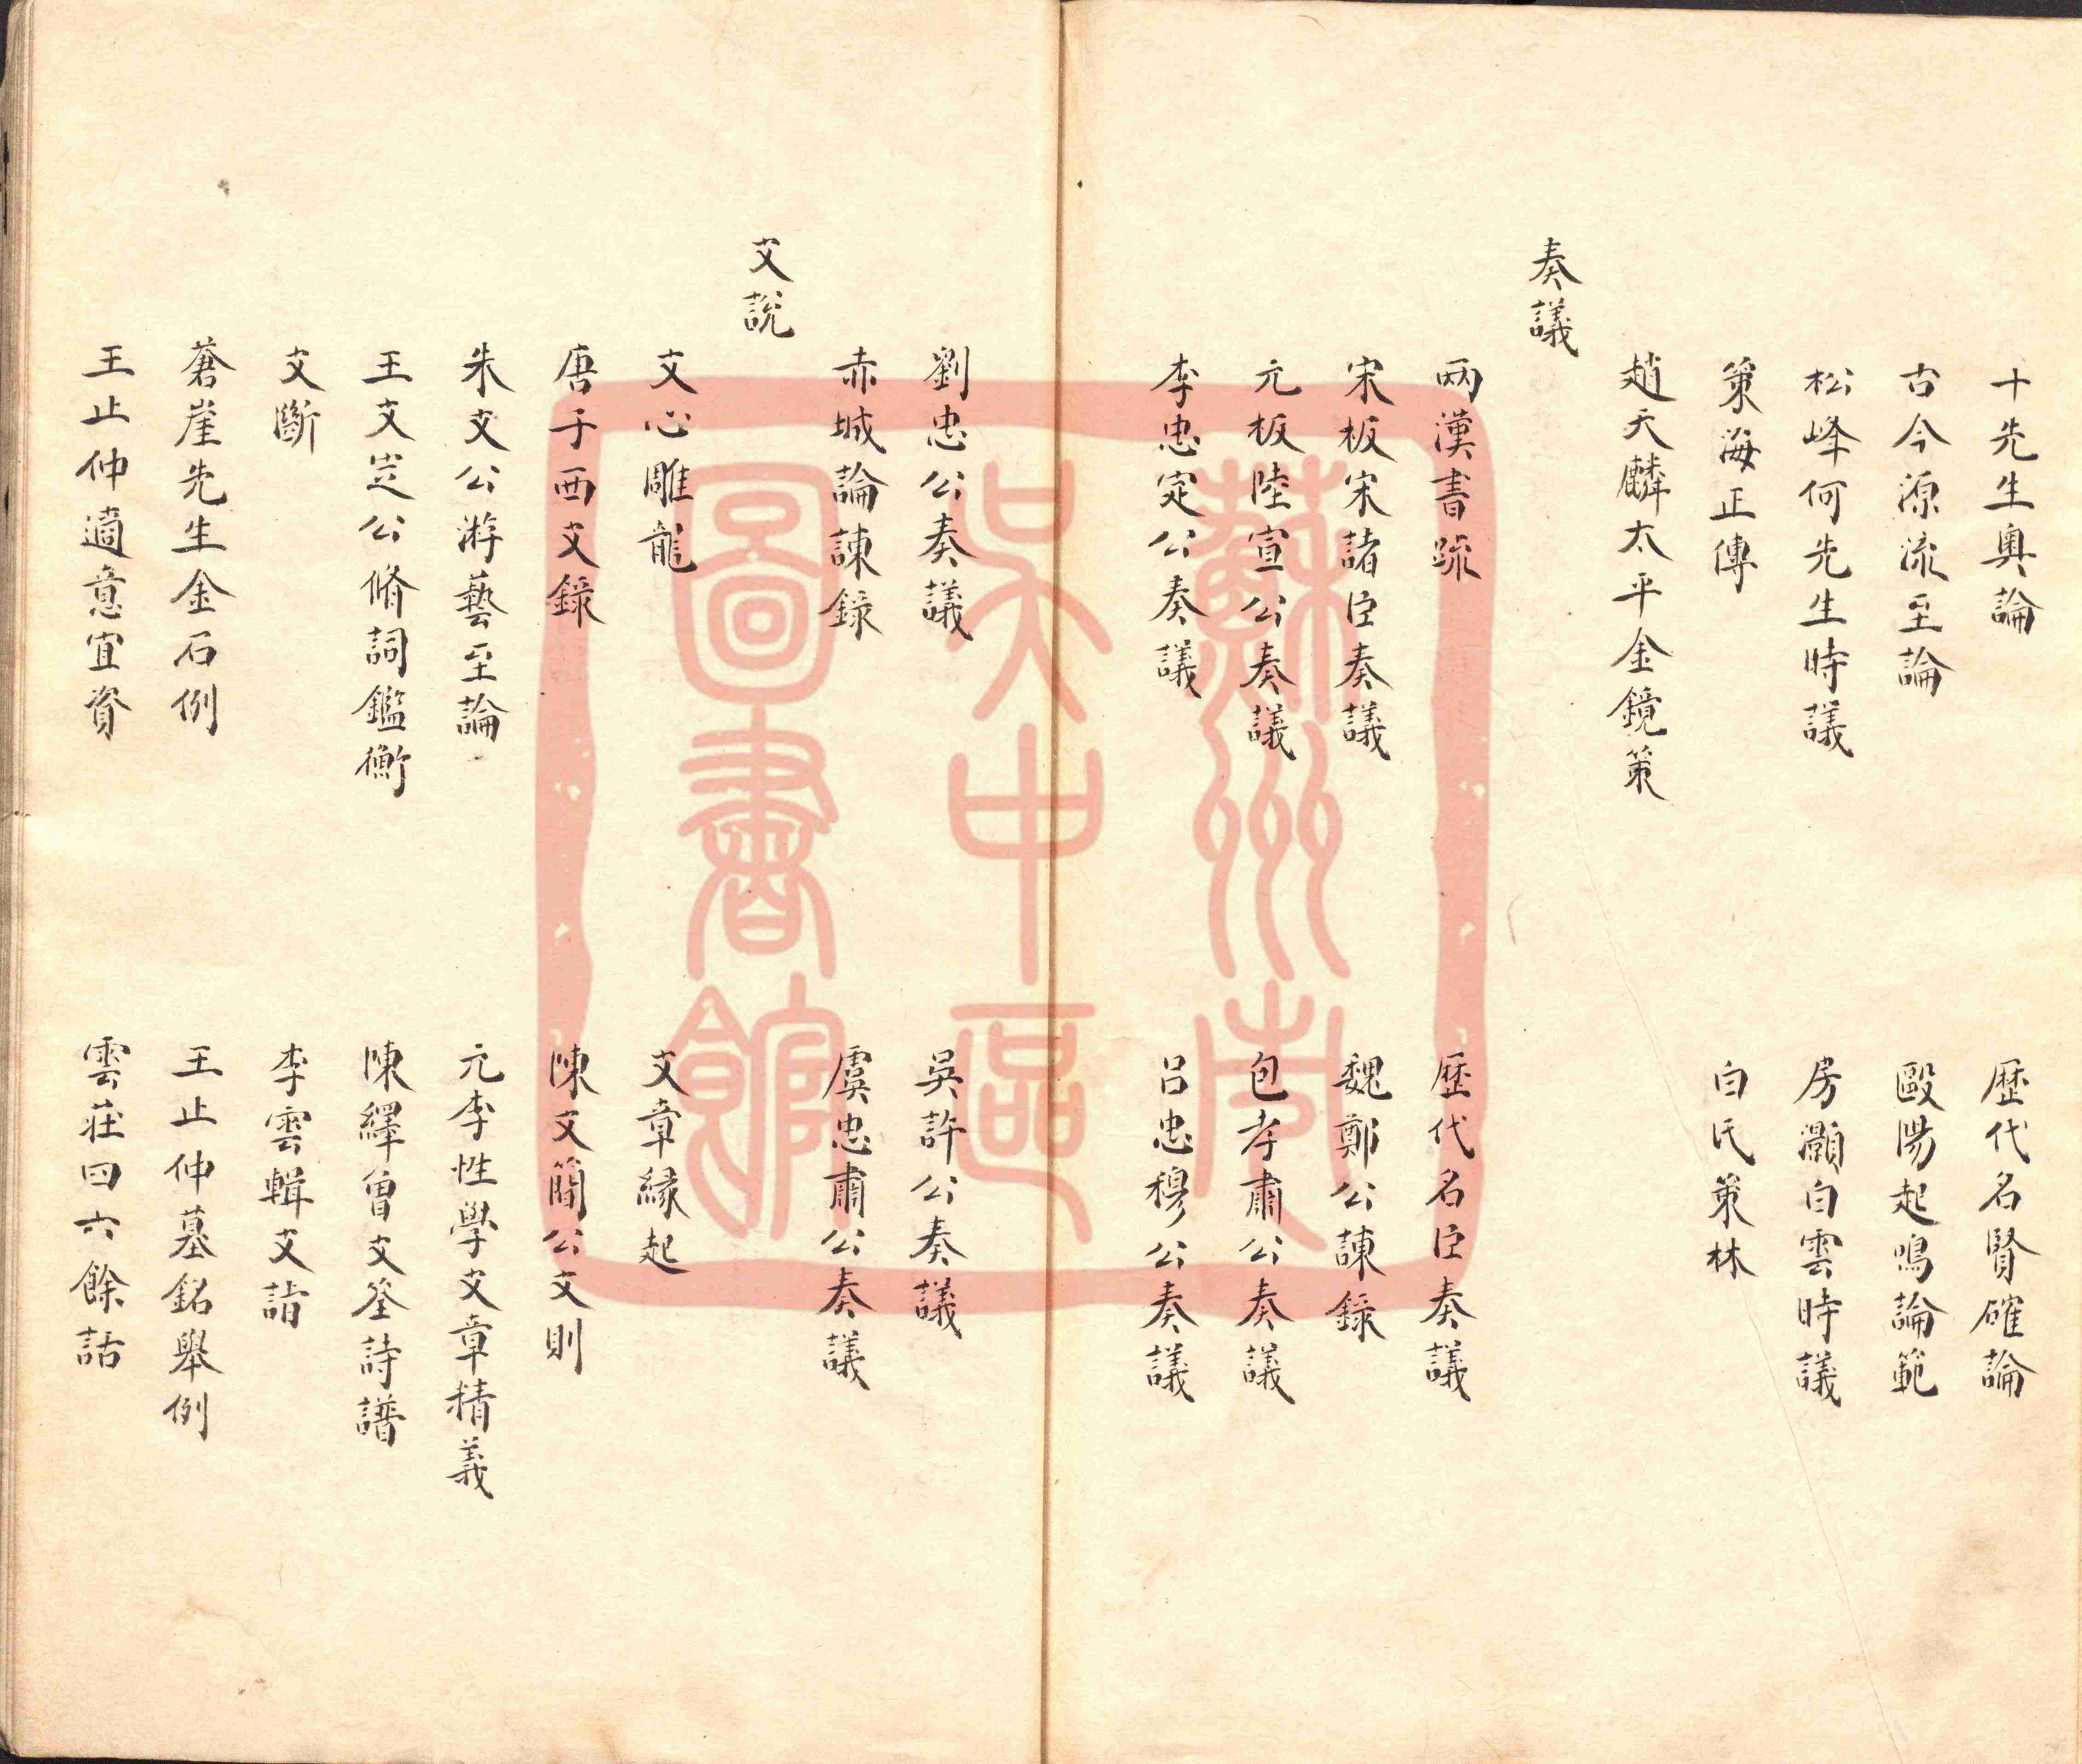 十先生奧論　歷代名賢確論
古今源流至論　毆陽起鳴論範
松峰何先生時議　房灝白雲時議
策海正傳　白氏策林
趙天麟太平金鏡策
奏議
兩漢書疏　歷代名臣奏議
宋板宋諸臣奏議　魏鄭公諫錄
元板陸宣公奏議　包孝肅公奏議
李忠定公奏議　呂忠穆公奏議
劉忠公奏議　吳許公奏議
赤城論諫錄　虞忠肅公奏議
文說
文心雕龍　文章緣起
唐子西文錄　陳文簡公文則
朱文公游藝至論　元李性學文章精義
王文定公脩詞鑑衡　陳繹曾文筌詩譜
文斷　李雲輯文誥
蒼崖先生金石例　王止仲墓銘舉例
王止仲適意宜資　雲莊四六餘話
蘇州市
吳中區
圖書館